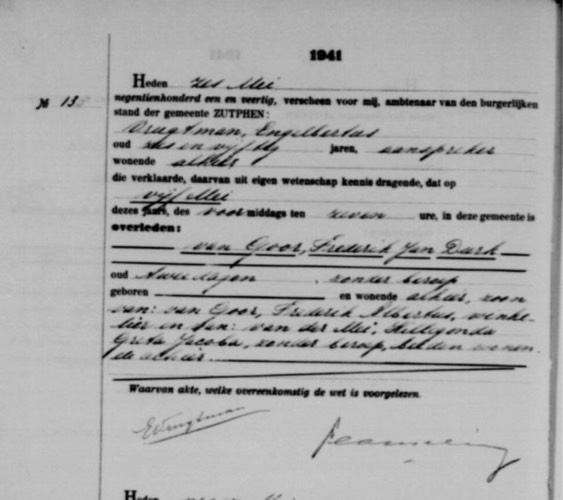 1941
Heden zes Mei
№ 13
negentienhonderd een en veertig, verscheen voor mij, ambtenaar van den burgerlijken
stand der gemeente ZUTPHEN:
Vrugtman, Engelbertus
oud zes en vijftig jaren, aanspreker
wonende alhier
die verklaarde, daarvan uit eigen wetenschap kennis dragende, dat op
vijf Mei
dezes jaars, des voormiddags ten zeven ure, in deze gemeente is
overleden:
van Goor, Frederik Jan Durk
oud twee dagen, zonder beroep
geboren en wonende alhier, zoon
van: van Goor, Frederik Albertus, winke-
lier en van: van der Mei, Hilligonda
Greta Jacoba, zonder beroep, beiden wonen-
de alhier.
Waarvan akte, welke overeenkomstig de wet is voorgelezen.
EVrugtman
Heden